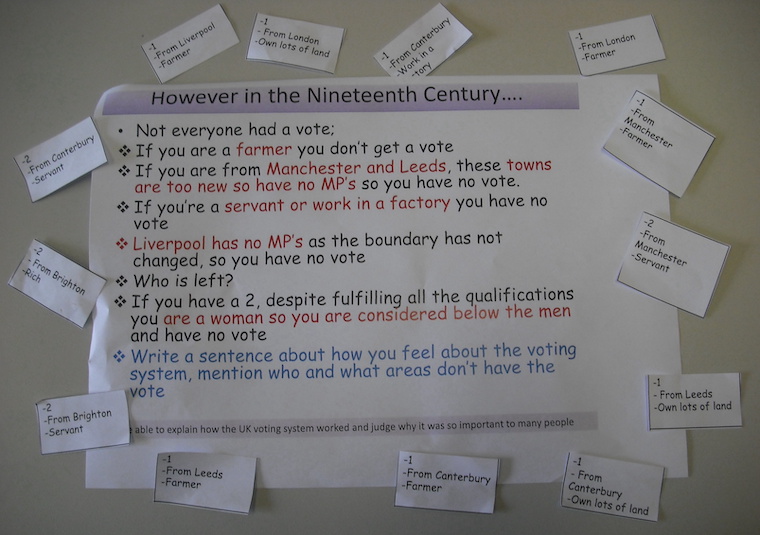 -1
-From Liverpool
-Farmer
-1
-From London
-Own lots of land
-1
-From Canterbury
-Work in a
-1
-From London
-Farmer
-2
-From Canterbury
-Servant
-1
-From
Manchester
-Farmer
However in the Nineteenth Century....
• Not everyone had a vote;
❖ If you are a farmer you don't get a vote
❖ If you are from Manchester and Leeds, these towns
are too new so have no MP's so you have no vote.
❖ If you're a servant or work in a factory you have no
vote
❖ Liverpool has no MP's as the boundary has not
changed, so you have no vote
❖ Who is left?
❖ If you have a 2, despite fulfilling all the qualifications
you are a woman so you are considered below the men
and have no vote
❖ Write a sentence about how you feel about the voting
system, mention who and what areas don't have the
vote
able to explain how the UK voting system worked and judge why it was so important to many people
-2
- From Brighton
-Rich
-2
-From
Manchester
-Servant
-2
-From Brighton
-Servant
-1
-From Leeds
-Own lots of land
-1
-From Leeds
-Farmer
-1
-From Canterbury
-Farmer
-1
- From
Canterbury
-Own lots of land